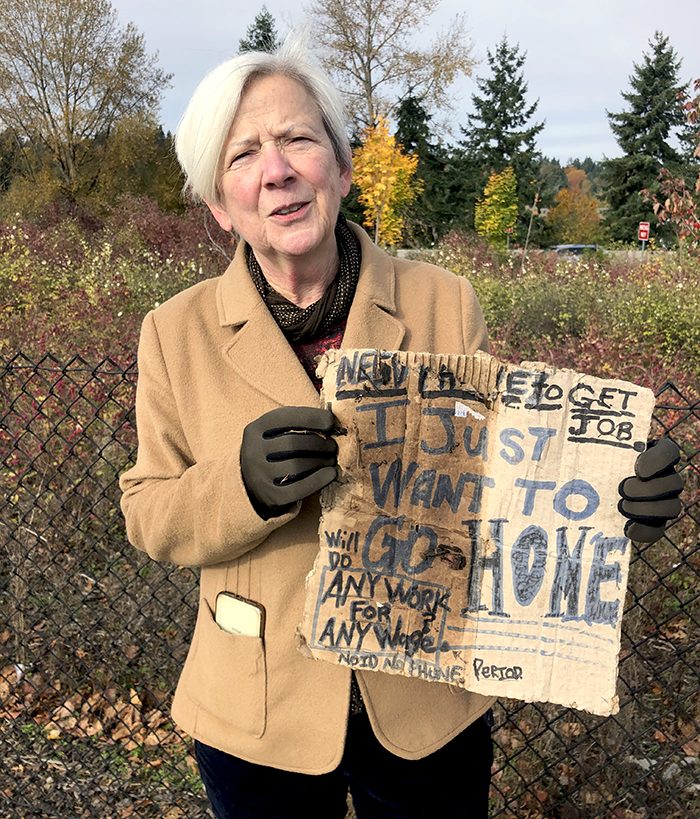 TO GET
JOB.
I JUST
WANT TO
GO HOME
Will
DO
ANY WORK
FOR
ANY Wage.
NO ID NO PHONE PERIOD